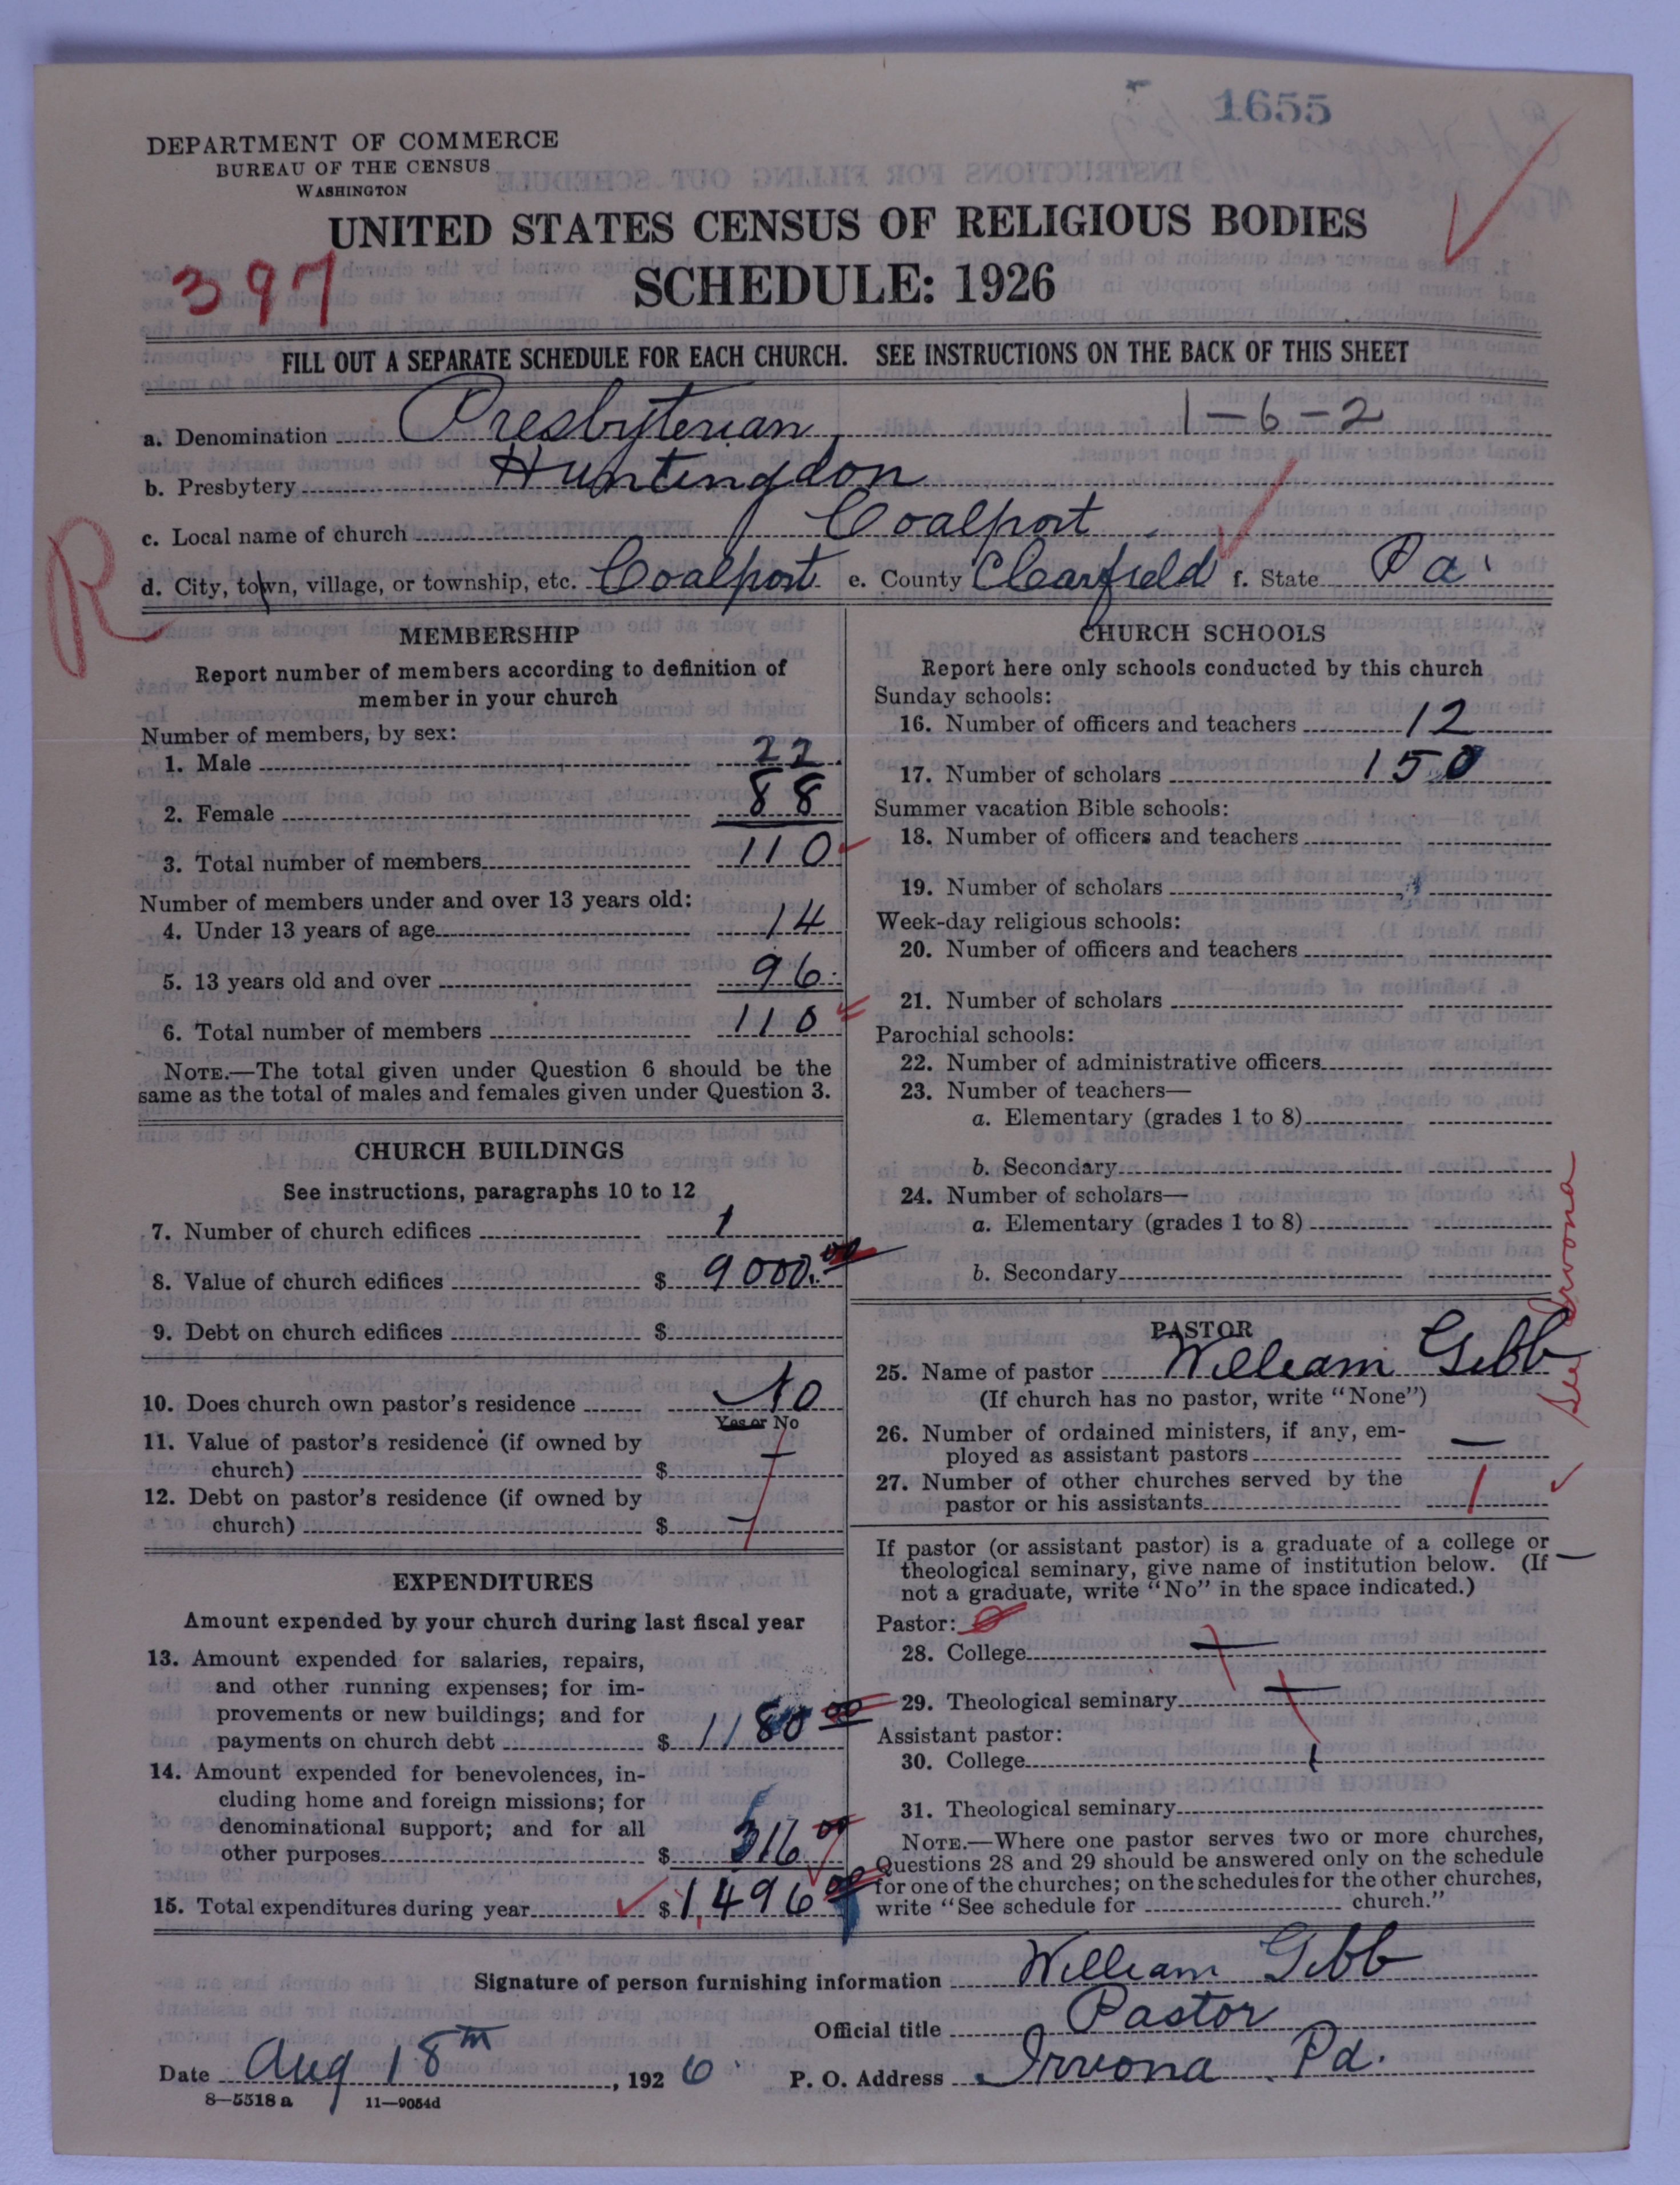 1655
DEPARTMENT OF COMMERCE
BUREAU OF THE CENSUS
WASHINGTON
UNITED STATES CENSUS OF RELIGIOUS BODIES
397
SCHEDULE: 1926
FILL OUT A SEPARATE SCHEDULE FOR EACH CHURCH. SEE INSTRUCTIONS ON THE BACK OF THIS SHEET
a. Denomination Presbyterian 1-6-2
b. Presbytery Huntingdon
c. Local name of church Coalport
R
d. City, town, village, or township, etc. Coalport e. County Clearfield f. State Pa.
MEMBERSHIP
Report number of members according to definition of
member in your church
Number of members, by sex:
1. Male 22
2. Female 88
3. Total number of members 110
Number of members under and over 13 years old:
4. Under 13 years of age 14
5. 13 years old and over 96
6. Total number of members 110
NOTE.—The total given under Question 6 should be the
same as the total of males and females given under Question 3.
CHURCH BUILDINGS
See instructions, paragraphs 10 to 12
7. Number of church edifices 1
8. Value of church edifices $ 9000.00
9. Debt on church edifices $
10. Does church own pastor's residence No
Yes or No
11. Value of pastor's residence (if owned by
church) $ —
12. Debt on pastor's residence (if owned by
church) $ —
EXPENDITURES
Amount expended by your church during last fiscal year
13. Amount expended for salaries, repairs,
and other running expenses; for im-
provements or new buildings; and for
payments on church debt $ 1180 00
14. Amount expended for benevolences, in-
cluding home and foreign missions; for
denominational support; and for all
other purposes $ 316 00
15. Total expenditures during year $ 1,496 00
CHURCH SCHOOLS
Report here only schools conducted by this church
Sunday schools:
16. Number of officers and teachers 12
17. Number of scholars 150
Summer vacation Bible schools:
18. Number of officers and teachers
19. Number of scholars
Week-day religious schools:
20. Number of officers and teachers
21. Number of scholars
Parochial schools:
22. Number of administrative officers
23. Number of teachers—
a. Elementary (grades 1 to 8)
b. Secondary
24. Number of scholars—
a. Elementary (grades 1 to 8)
b. Secondary
See Irvona
PASTOR
25. Name of pastor William Gibb
(If church has no pastor, write "None")
26. Number of ordained ministers, if any, em-
ployed as assistant pastors —
27. Number of other churches served by the
pastor or his assistants 1
If pastor (or assistant pastor) is a graduate of a college or
theological seminary, give name of institution below. (If
not a graduate, write "No" in the space indicated.)
Pastor:
28. College —
29. Theological seminary —
Assistant pastor:
30. College
31. Theological seminary
NOTE.—Where one pastor serves two or more churches,
Questions 28 and 29 should be answered only on the schedule
for one of the churches; on the schedules for the other churches,
write "See schedule for church."
Signature of person furnishing information William Gibb
Official title Pastor
Date Aug 18th, 1926 P. O. Address Irvona Pa.
8—5518 a 11—9054d